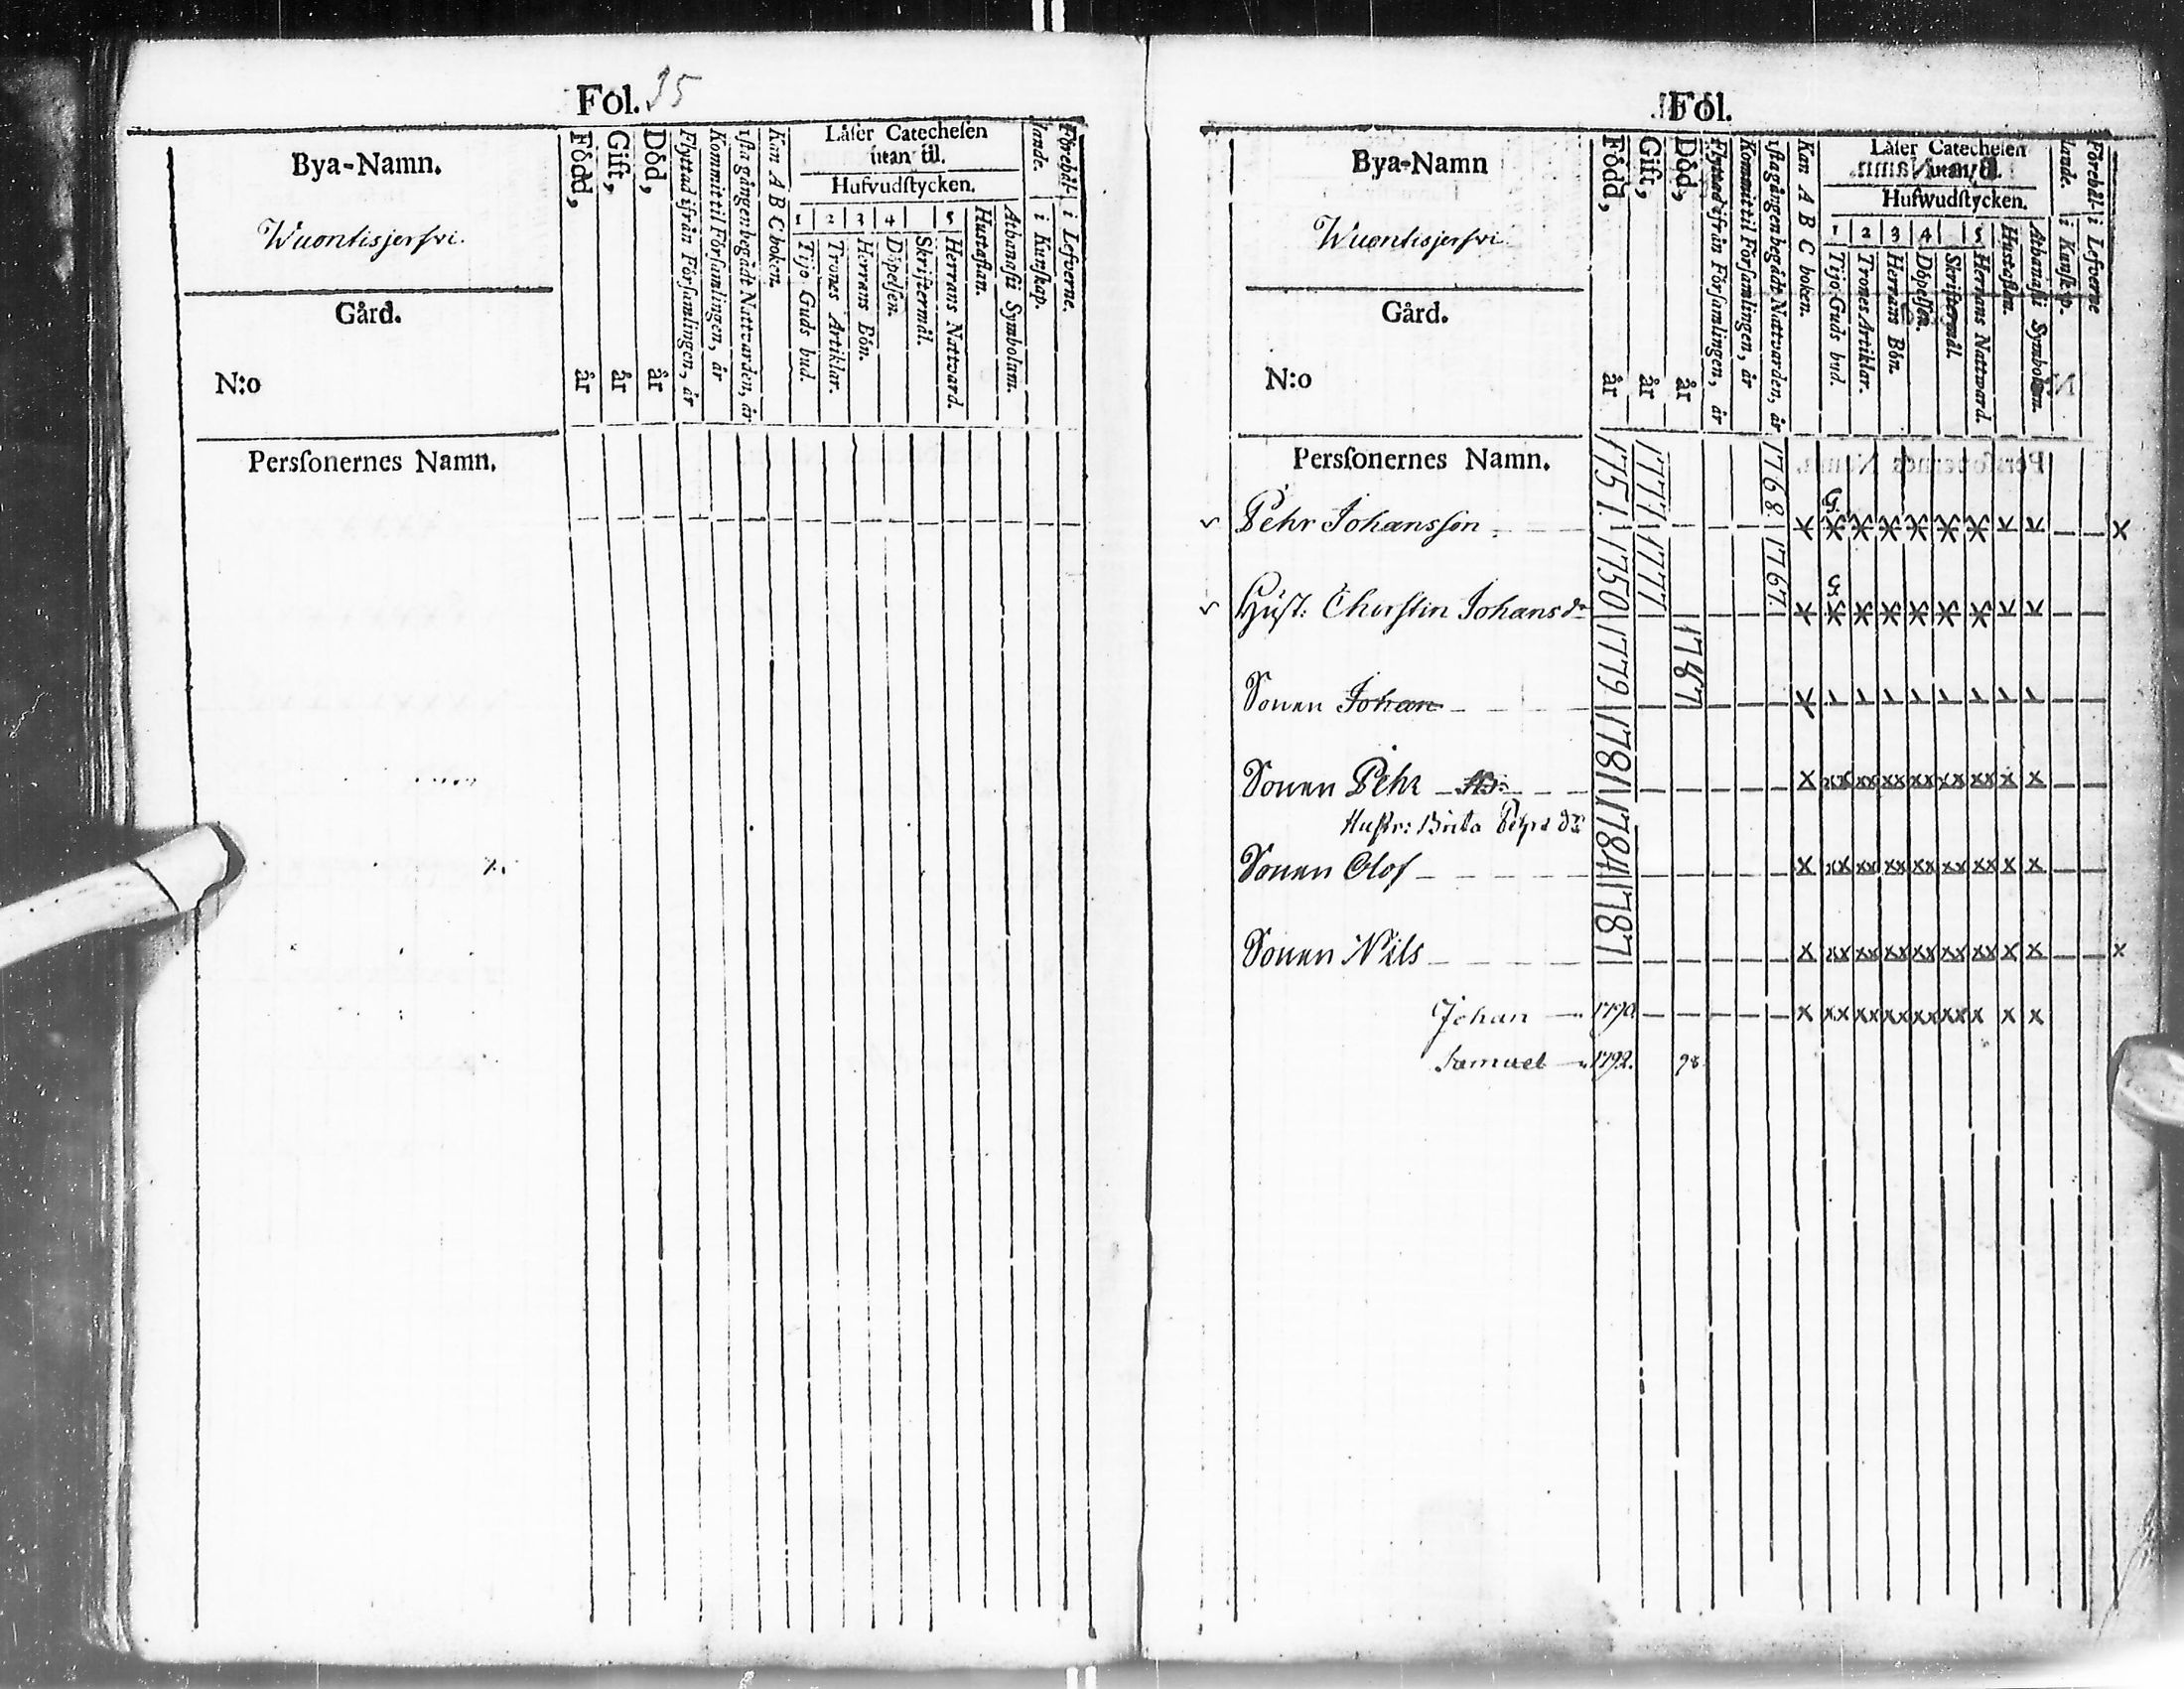 Fol. 35
Bya-Namn.
Wuontisjerfvi.
Gård.
N:o
Persſonernes Namn.
Född, år
Gift, år
Död, år
Flyttad ifrån Förſamlingen, år
Kommit til Förſamlingen, år
1ſta gången begådt Nattvarden, år
Kan A B C boken.
Låſer Catecheſen
utan til.
Hufvudſtycken.
1 2 3 4 5
Tijo Guds bud.
Trones Artiklar.
Herrans Bön.
Döpelſen.
Skriftermål.
Herrans Nattvard.
Hustaflan.
Athanaſii Symbolum.
Förehål-
lande.
i Kunſkap.
i Lefverne.
Fol.
Bya-Namn
Wuontisjerfvi
Gård.
N:o
Persſonernes Namn.
Född, år
Gift, år
Död, år
Flyttad ifrån Förſamlingen, år
Kommit til Förſamlingen, år
1ſta gången begådt Nattvarden, år
Kan A B C boken.
Låſer Catecheſen
utan til.
Hufwudſtycken.
1 2 3 4 5
Tijo Guds bud.
Trones Artiklar.
Herrans Bön.
Döpelſen.
Skriftermål.
Herrans Nattward.
Hustaflan.
Athanaſii Symbolum.
Förehål-
lande.
i Kunſkap.
i Lefverne
Pehr Johansſon 1751. 1777 1768
Huſt: Cherſtin Johans dr 1750 1777 1767.
Sonen Johan 1779 1787
Sonen Pehr 1781
Huſtr: Brita Pehrs dr
Sonen Olof 1784
Sonen Nils 1787
Johan 1790.
Samuel 1792. 98